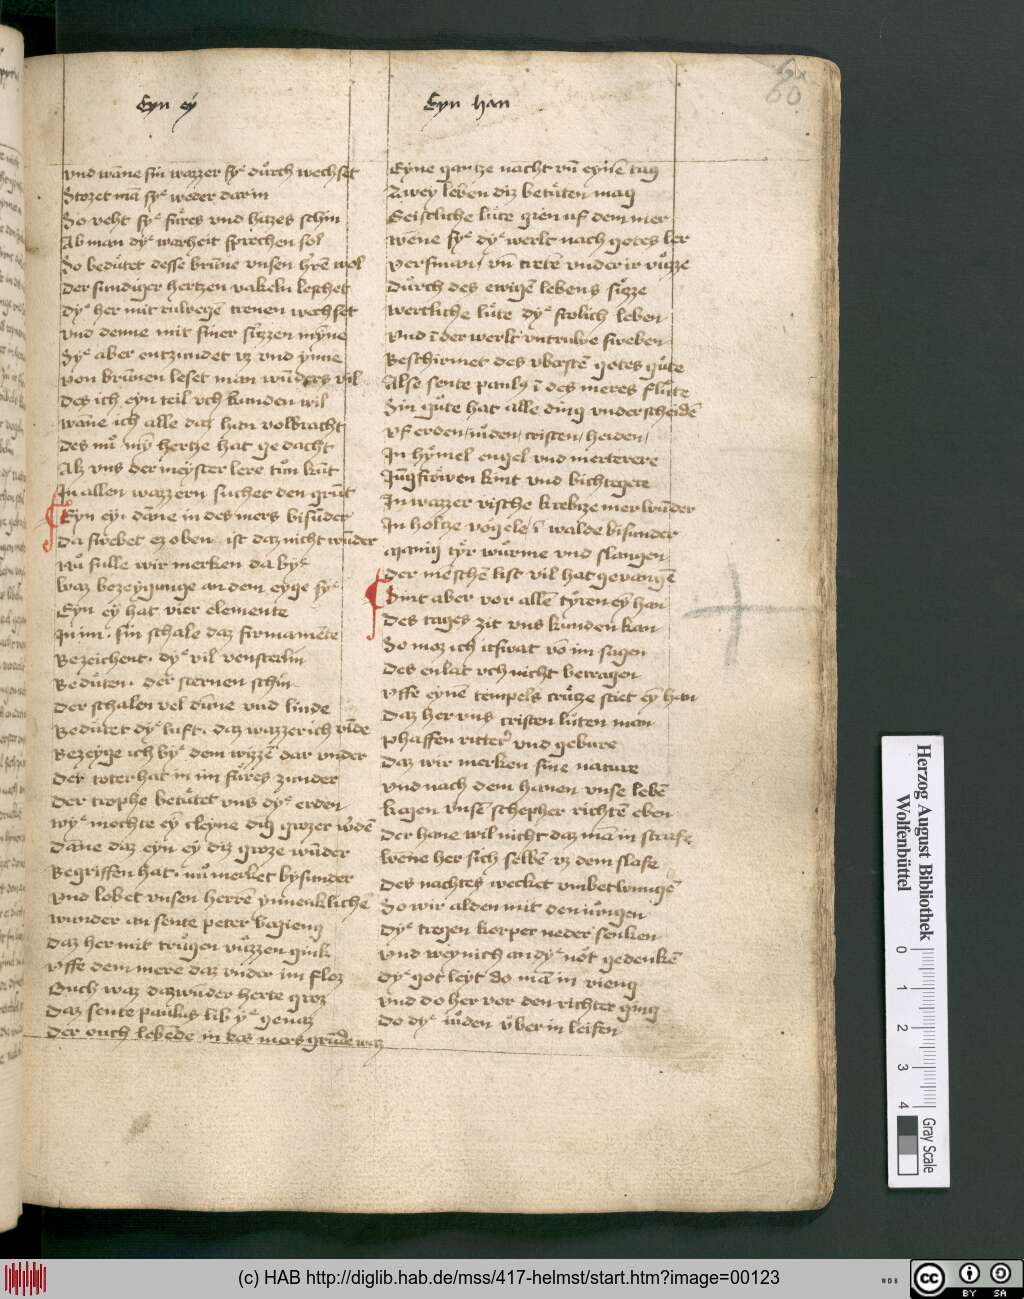 60
Eyn eẏ
vnd wāne sin wazzer sẏͤ důrch wechset
Stozet mā sẏͤ weder dar in
So veht sẏͤ fůres vnd hitzes schin
Ab man dẏͤ warheit sprechen sol
So bedůtet desse brūne vnsen hr̄en wol
Der sundiger hertzen vakeln leschet
dẏͤ her mit ruwegē trenen wechset
vnd denne mit siner sitzen mẏ̄ne
Sẏͤ aber entzundet vz vnd ẏnne
von brūnen leset man wūders vil
des ich eyn teil vch kunden wil
wāne ich alle daz han volbracht
des mů mẏ̄ hertze hat gedacht
Alz vns der meẏster lere tůn kūt
In allen wazzern suchet den grūt
Eyn eẏ. dāne in des mers bisūder
Da swebet ez oben. ist daz nicht wūder
Nů sulle wir merken da bẏͤ
waz bezeẏgunge an dem eyge sẏͤ
Eyn eẏ hat vier elemente
In im. sin schale daz firmamēte
Bezeichent. dẏͤ vil vensterlin
Bedůten. der sternen schin
Der schalen vel dūne vnd linde
Bedůtet dẏͤ luft. daz wazzer ich vīde
Bezeẏge ich bẏͤ dem wizzē dar vnder
Der toter hat in im fůres zunder
Der trophe betůtet vns dẏͤ erden
wẏͤ mochte eẏ cleẏne diq grozer w̄dē
Dāne daz eẏn eẏ diz groze wūder
Begriffen hat. nů merket bẏsunder
vnd lobet vnsen herrē ẏnnenkliche
wunder an sente peter bagienq
Daz her mit trůgen vůzzen ginc
vffe dem mere daz vnder im floz
Ouch waz daz wūder herte groz
Daz sente paulus lib ẏͤ genaz
Der ouch lebēde in des mers grūde waz
Eyn han
Eyne gantze nacht vn̄ eynē tag
Zwey leben diz betůten mag
Geistliche lůte gien uf dem mer
wenne sẏͤ dẏͤ werlt nach gotes ler
versman / vn̄ tretē vnder ir vůzze
Důrch des ewigē lebens sůzze
wertliche lůte dẏͤ frolich leben
vnd ī der werlt vntruwe streben
Beschirmet des vberstē gotes gůte
Alse sente paulꝯ ī des meres flůte
Sin gůte hat alle dinq vnderscheidē
vf erden / iůden / cristen / heiden /
In hẏmel engel vnd merterere
Iūgfrowen kint vnd bichtegere
In wazzer vische krebize mer wūder
In holtze vogele / ī walde bisunder
Maniq tẏr wůrme vnd slangen
der mēschē list vil hat gevangē
Sint aber vor allē tẏren eẏ han
des tages zit vns kunden kan
So moz ich itswat vō im sagen
des en lat vch nicht betragen
vffe eẏnē tempels crůtze stet eẏ han
Daz her vns cristen lůten man
phaffen ritter vnd gebure
Daz wir merken sine nature
vnd nach dem hanen vnse lebē
kegen vnsē schepher richtē eben
der hane wil nicht daz mā in strafe
wene her sich selbē vz dem slafe
des nachtes wecket vmbetwungē
So wir alden mit den iůngen
dẏͤ tregen korper neder senken
vnd weynich an dẏͤ nōt gedenkē
dẏͤ got leyt do mā in vienq
vnd do her vor den richter ginq
do dẏͤ iůden vber in leifen
Herzog August Bibliothek
Wolfenbüttel
0 1 2 3 4
Gray Scale
(c) HAB http://diglib.hab.de/mss/417-helmst/start.htm?image=00123
WDB
cc BY SA